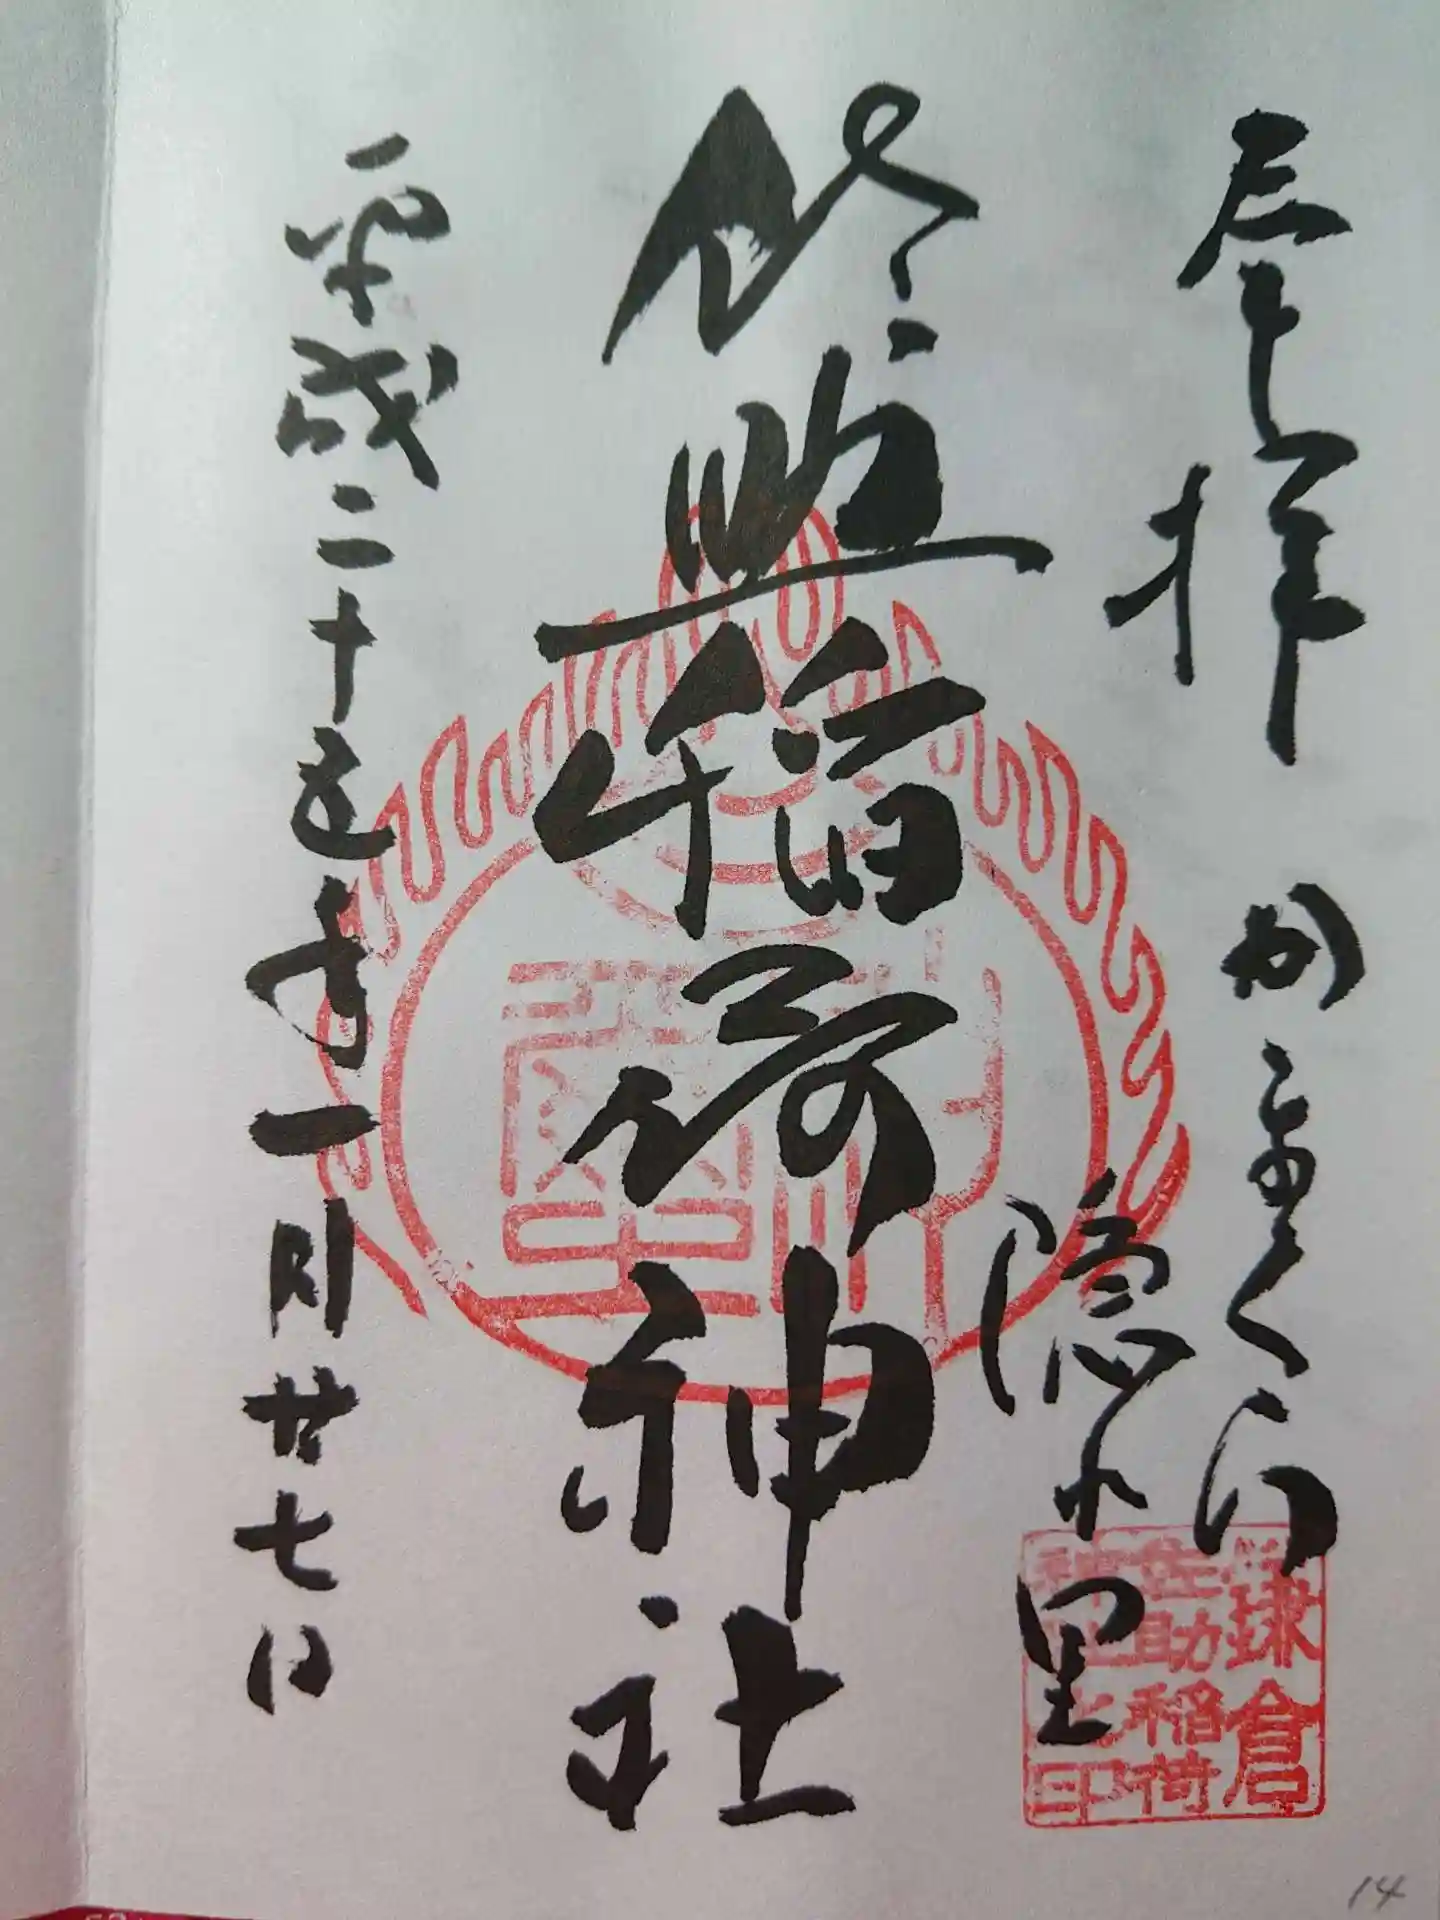 奉拝 かまくら
隠れ里
佐助稲荷神社
平成二十五年一月廿七日
鎌倉
佐助稲荷
神社之印
14